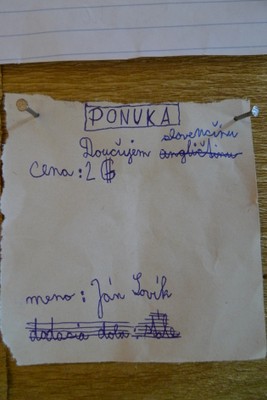 PONUKA
slovenčinu
Doučujem angličtinu
cena: 2 $
meno: Ján Lovík
dodacia doba: